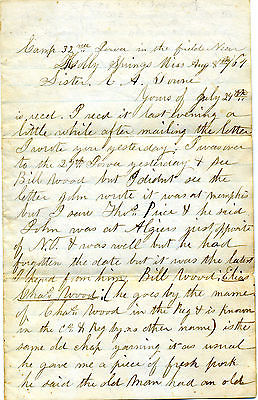 Camp 32nd Iowa in the field Near
Holly Springs Miss Aug 8th/64
Sister, E. A. Towne
Yours of July 24th
is recd. I recd it last evening a
little while after mailing the letter
I wrote you yesterday. I was over
to the 27th Iowa yesterday & see
Bill Wood but I didnt see the
letter John wrote it was at memphis
but I saw Thos Price & he said
John was at Algiers just opposite
of N.O. & was well but he had
forgotten the date but it was the latest
I heard from him, Bill Wood, Elias
Chas Wood, (he goes by the name
of Chas Wood in the Regt & is known
in the Co & Reg by no other name) is the
same old chap yarning it as usual
he gave me a piece of fresh pork
he said the old man had an old